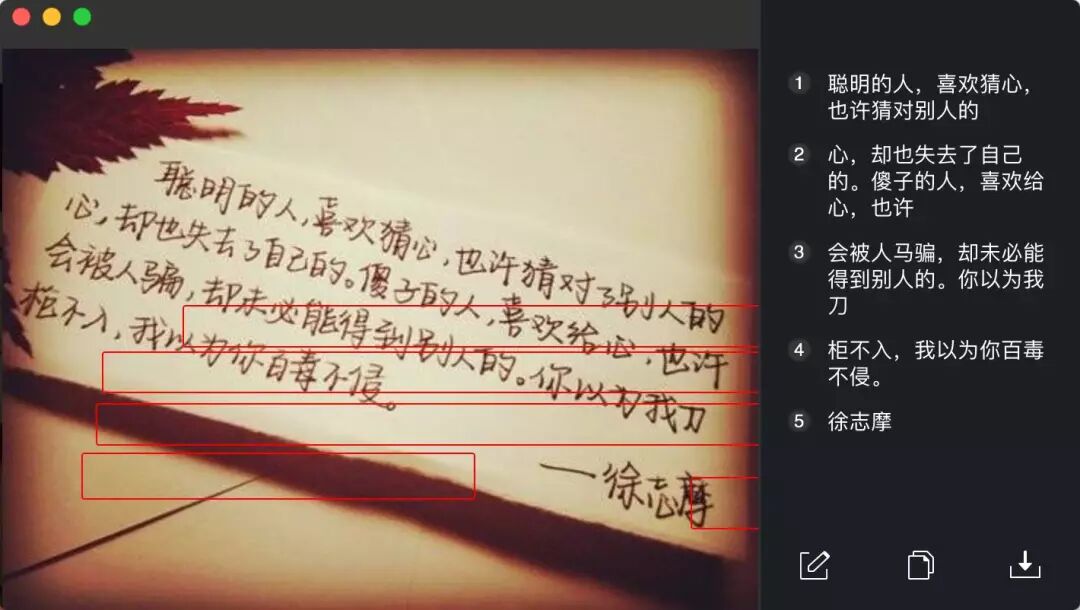 聪明的人,喜欢猜心,也许猜对了别人的
心,却也失去了自己的。傻子的人,喜欢给心,也许
会被人骗,却未必能得到别人的。你以为我刀
柜不入,我以为你百毒不侵。
——徐志摩
1 聪明的人，喜欢猜心，
也许猜对别人的
2 心，却也失去了自己
的。傻子的人，喜欢给
心，也许
3 会被人马骗，却未必能
得到别人的。你以为我
刀
4 柜不入，我以为你百毒
不侵。
5 徐志摩